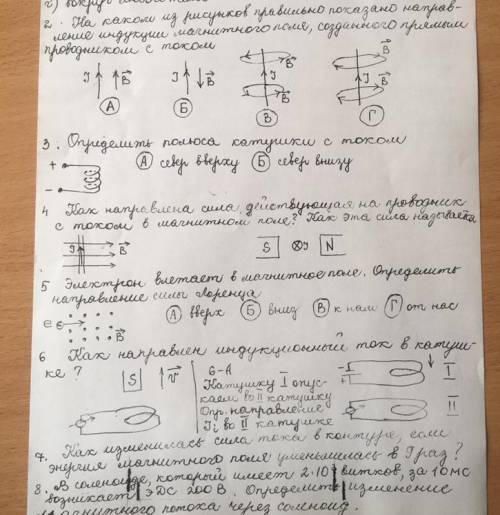 вокруг
2. На каком из рисунков правильно показано направ-
ление индукции магнитного поля, созданного прямым
проводником с током
I B I B B I B I B
А Б В Г
3. Определить полюса катушки с током
+ -
А север вверху Б север внизу
4 Как направлена сила, действующая на проводник
с током в магнитном поле? Как эта сила называется
I B S ⊗I N
5 Электрон влетает в магнитное поле. Определить
направление силы Лоренца
e B А вверх Б вниз В к нам Г от нас
6 Как направлен индукционный ток в катуш-
ке?
S v
6-А
Катушку I опус-
каем во II катушку
Опр. направление
Ii во II катушке
I
II
7. Как изменилась сила тока в контуре, если
энергия магнитного поля уменьшилась в 9 раз?
8. В соленоиде, который имеет 2·10 витков, за 10 мс
возникает ЭДС 200 В. Определить изменение
магнитного потока через соленоид.